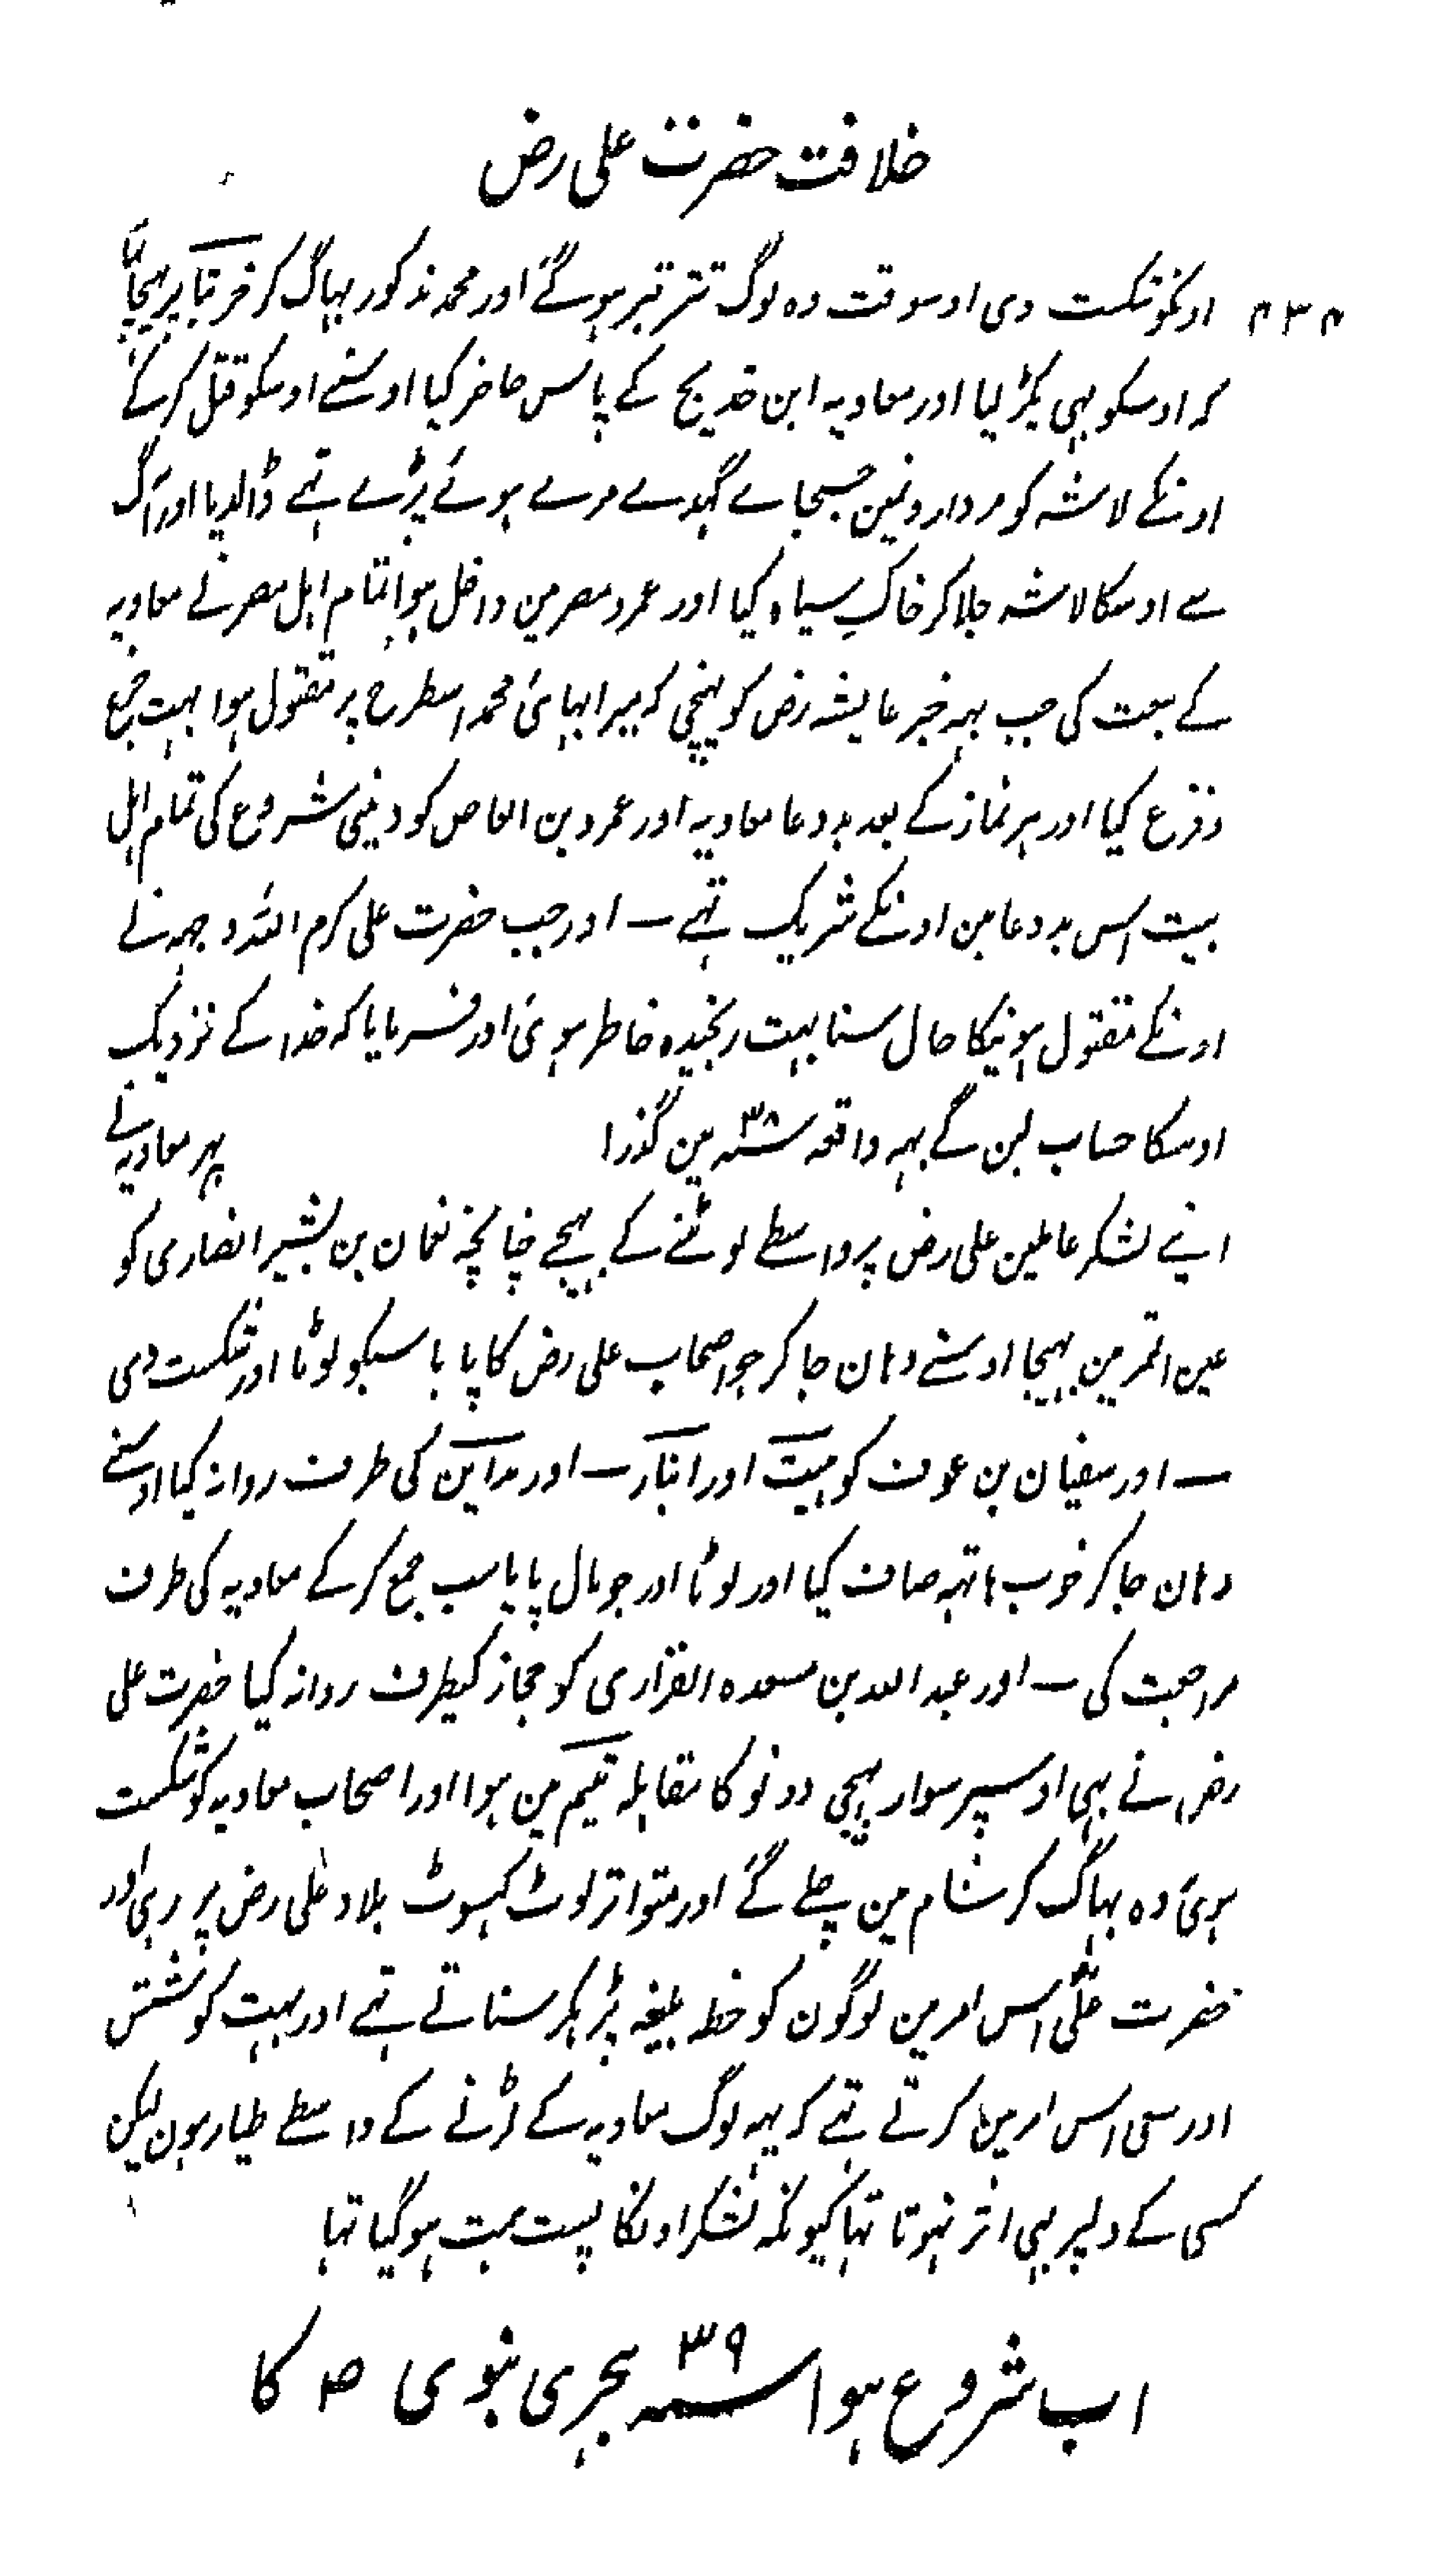 خلافت حضرت علی رض
۴۳۴ اونکو شکست دی اوسوقت وہ لوگ تتر بتر ہو گئے اور محمد مذکور بہاگ کر خربتا پر پہنچا
کہ اوسکو بہی پکڑ لیا اور معاویہ ابن خدیج کے پاس حاضر کیا اوسنے اوسکو قتل کر کے
اونکے لاشہ کو مردارونمین جسجاے گہدے مرے ہوئے پڑے تہے ڈالدیا اور آگ
سے اوسکا لاشہ جلا کر خاک سیاہ کیا اور عمرو مصر مین داخل ہوا تمام اہل مصر نے معاویہ
کے بیعت کی جب یہہ خبر عایشہ رض کو پہنچی کہ میرا بہائی محمد اسطرح پر مقتول ہوا بہت جزع
و فزع کیا اور ہر نماز کے بعد بددعا معاویہ اور عمرو بن العاص کو دینی شروع کی تمام اہل
بیت اس بددعا مین اونکے شریک تہے ـ اور جب حضرت علی کرم اللہ وجہہ نے
اونکے مقتول ہونیکا حال سنا بہت رنجیدہ خاطر ہوئی اور فرمایا کہ خدا کے نزدیک
اوسکا حساب لین گے یہہ واقعہ ۳۸ سنہ مین گذرا پہر معاویہ نے
اپنے لشکر عاملین علی رض پر واسطے لوٹنے کے بہیجے چنانچہ نعمان بن بشیر انصاری کو
عین التمر مین بہیجا اوسنے وہان جا کر جو اصحاب علی رض کا پایا سبکو لوٹا اور شکست دی
ـ اور سفیان بن عوف کو ہیت اور انبار ـ اور مداین کی طرف روانہ کیا اوسنے
وہان جا کر خوب ہاتہہ صاف کیا اور لوٹا اور جو مال پایا سب جمع کر کے معاویہ کی طرف
مراجعت کی ـ اور عبد اللہ بن مسعدہ الفزاری کو حجاز کیطرف روانہ کیا حضرت علی
رض نے بہی اوسپر سوار بہیجی دونو کا مقابلہ تیم مین ہوا اور اصحاب معاویہ کو شکست
ہوئی وہ بہاگ کر شام مین چلے گئے اور متواتر لوٹ کہسوٹ بلاد علی رض پر رہی اور
حضرت علی اس امر مین لوگون کو خطبہ بلیغہ پڑہکر سناتے تہے اور بہت کوشش
اور سعی اس امر مین کرتے تہے کہ یہہ لوگ معاویہ کے لڑنے کے واسطے طیار ہون لیکن
کسی کے دلپر بہی اثر نہوتا تہا کیونکہ لشکر اونکا پست ہمت ہو گیا تہا
اب شروع ہوا ۳۹ سنہ ہجری نبوی ص کا